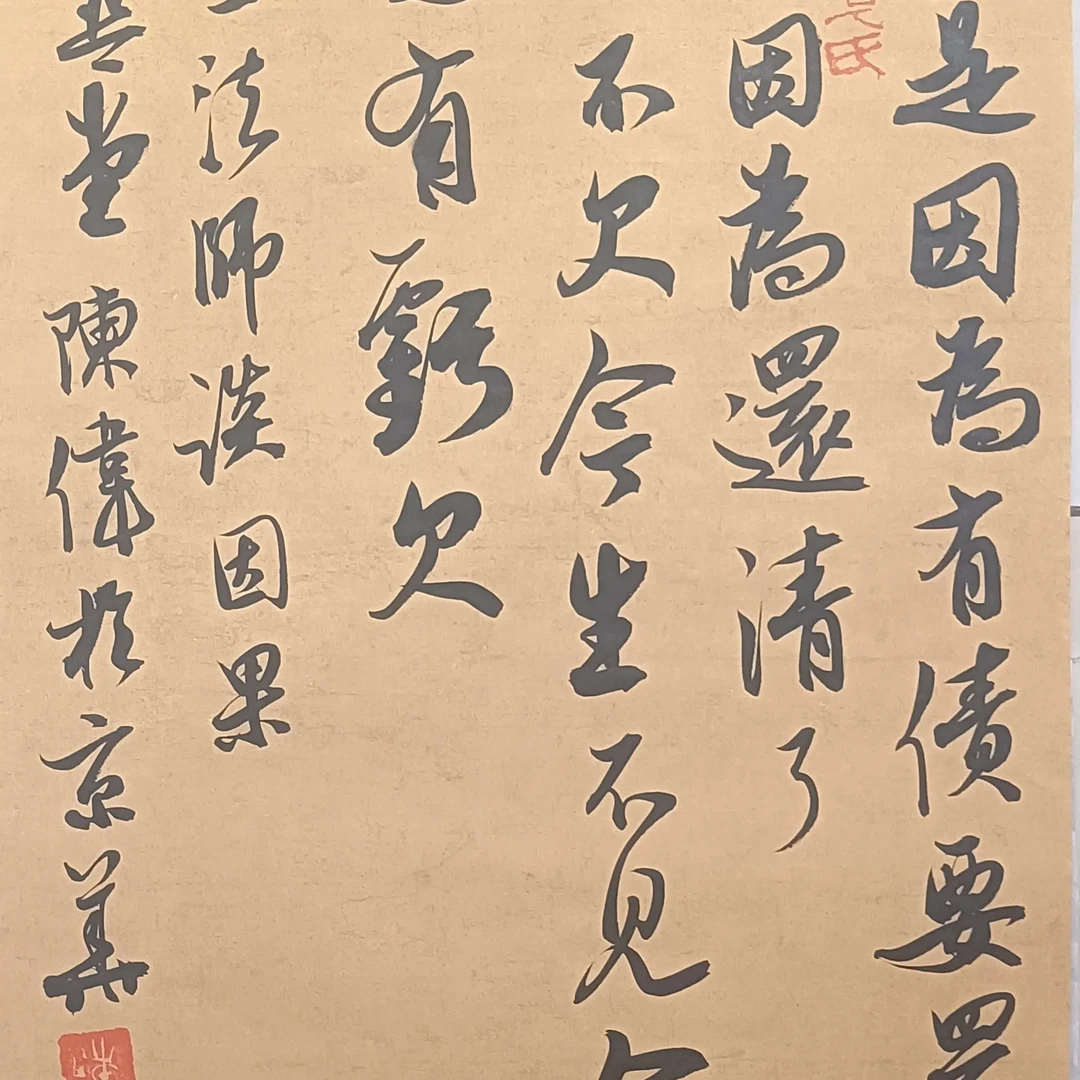 是因為有債要還
因為還清了
不欠今生不見
有虧欠
法師談因果
堂 陳偉於京華